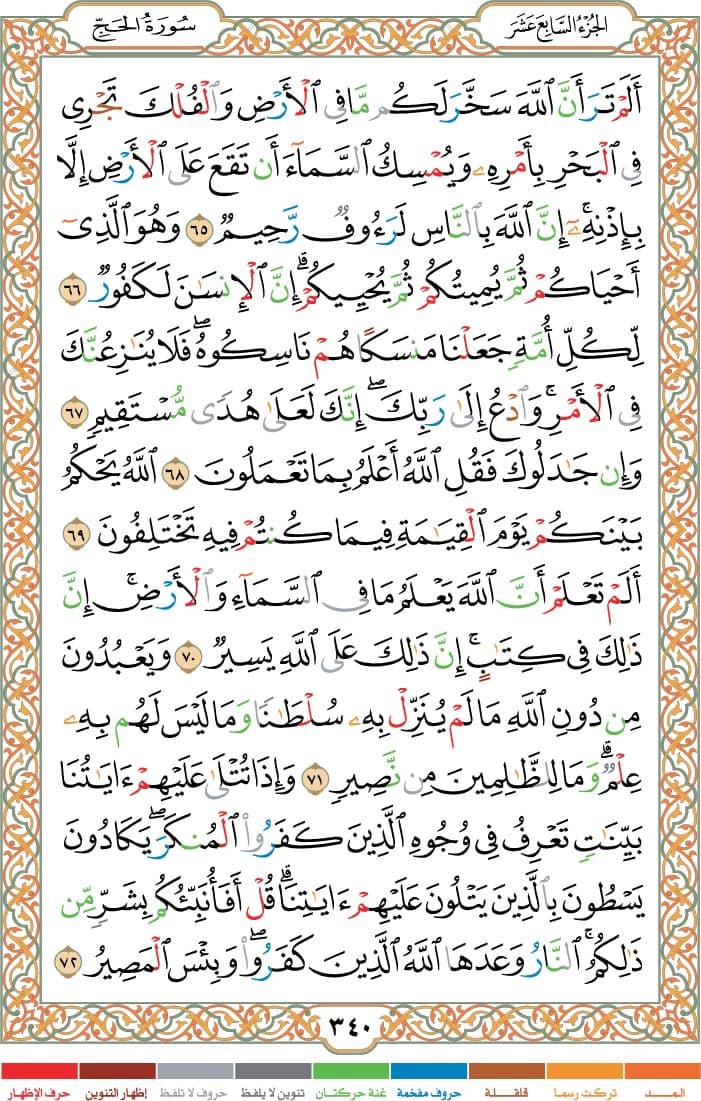 الجزء السابع عشر
سورة الحج
أَلَمْ تَرَ أَنَّ ٱللَّهَ سَخَّرَ لَكُم مَّا فِى ٱلْأَرْضِ وَٱلْفُلْكَ تَجْرِى
فِى ٱلْبَحْرِ بِأَمْرِهِۦ وَيُمْسِكُ ٱلسَّمَآءَ أَن تَقَعَ عَلَى ٱلْأَرْضِ إِلَّا
بِإِذْنِهِۦٓ ۗ إِنَّ ٱللَّهَ بِٱلنَّاسِ لَرَءُوفٌ رَّحِيمٌ ٦٥ وَهُوَ ٱلَّذِىٓ
أَحْيَاكُمْ ثُمَّ يُمِيتُكُمْ ثُمَّ يُحْيِيكُمْ ۗ إِنَّ ٱلْإِنسَٰنَ لَكَفُورٌ ٦٦
لِّكُلِّ أُمَّةٍ جَعَلْنَا مَنسَكًا هُمْ نَاسِكُوهُ ۖ فَلَا يُنَٰزِعُنَّكَ
فِى ٱلْأَمْرِ ۚ وَٱدْعُ إِلَىٰ رَبِّكَ ۖ إِنَّكَ لَعَلَىٰ هُدًى مُّسْتَقِيمٍ ٦٧
وَإِن جَٰدَلُوكَ فَقُلِ ٱللَّهُ أَعْلَمُ بِمَا تَعْمَلُونَ ٦٨ ٱللَّهُ يَحْكُمُ
بَيْنَكُمْ يَوْمَ ٱلْقِيَٰمَةِ فِيمَا كُنتُمْ فِيهِ تَخْتَلِفُونَ ٦٩
أَلَمْ تَعْلَمْ أَنَّ ٱللَّهَ يَعْلَمُ مَا فِى ٱلسَّمَآءِ وَٱلْأَرْضِ ۗ إِنَّ
ذَٰلِكَ فِى كِتَٰبٍ ۚ إِنَّ ذَٰلِكَ عَلَى ٱللَّهِ يَسِيرٌ ٧٠ وَيَعْبُدُونَ
مِن دُونِ ٱللَّهِ مَا لَمْ يُنَزِّلْ بِهِۦ سُلْطَٰنًا وَمَا لَيْسَ لَهُم بِهِۦ
عِلْمٌ ۗ وَمَا لِلظَّٰلِمِينَ مِن نَّصِيرٍ ٧١ وَإِذَا تُتْلَىٰ عَلَيْهِمْ ءَايَٰتُنَا
بَيِّنَٰتٍ تَعْرِفُ فِى وُجُوهِ ٱلَّذِينَ كَفَرُوا۟ ٱلْمُنكَرَ ۖ يَكَادُونَ
يَسْطُونَ بِٱلَّذِينَ يَتْلُونَ عَلَيْهِمْ ءَايَٰتِنَا ۗ قُلْ أَفَأُنَبِّئُكُم بِشَرٍّ مِّن
ذَٰلِكُمُ ۗ ٱلنَّارُ وَعَدَهَا ٱللَّهُ ٱلَّذِينَ كَفَرُوا۟ ۖ وَبِئْسَ ٱلْمَصِيرُ ٧٢
٣٤٠
المـــد تركت رسما قلقلة حروف مفخمة غنة حركتان تنوين لا يلفظ حروف لا تلفظ إظهار التنوين حرف الإظهار